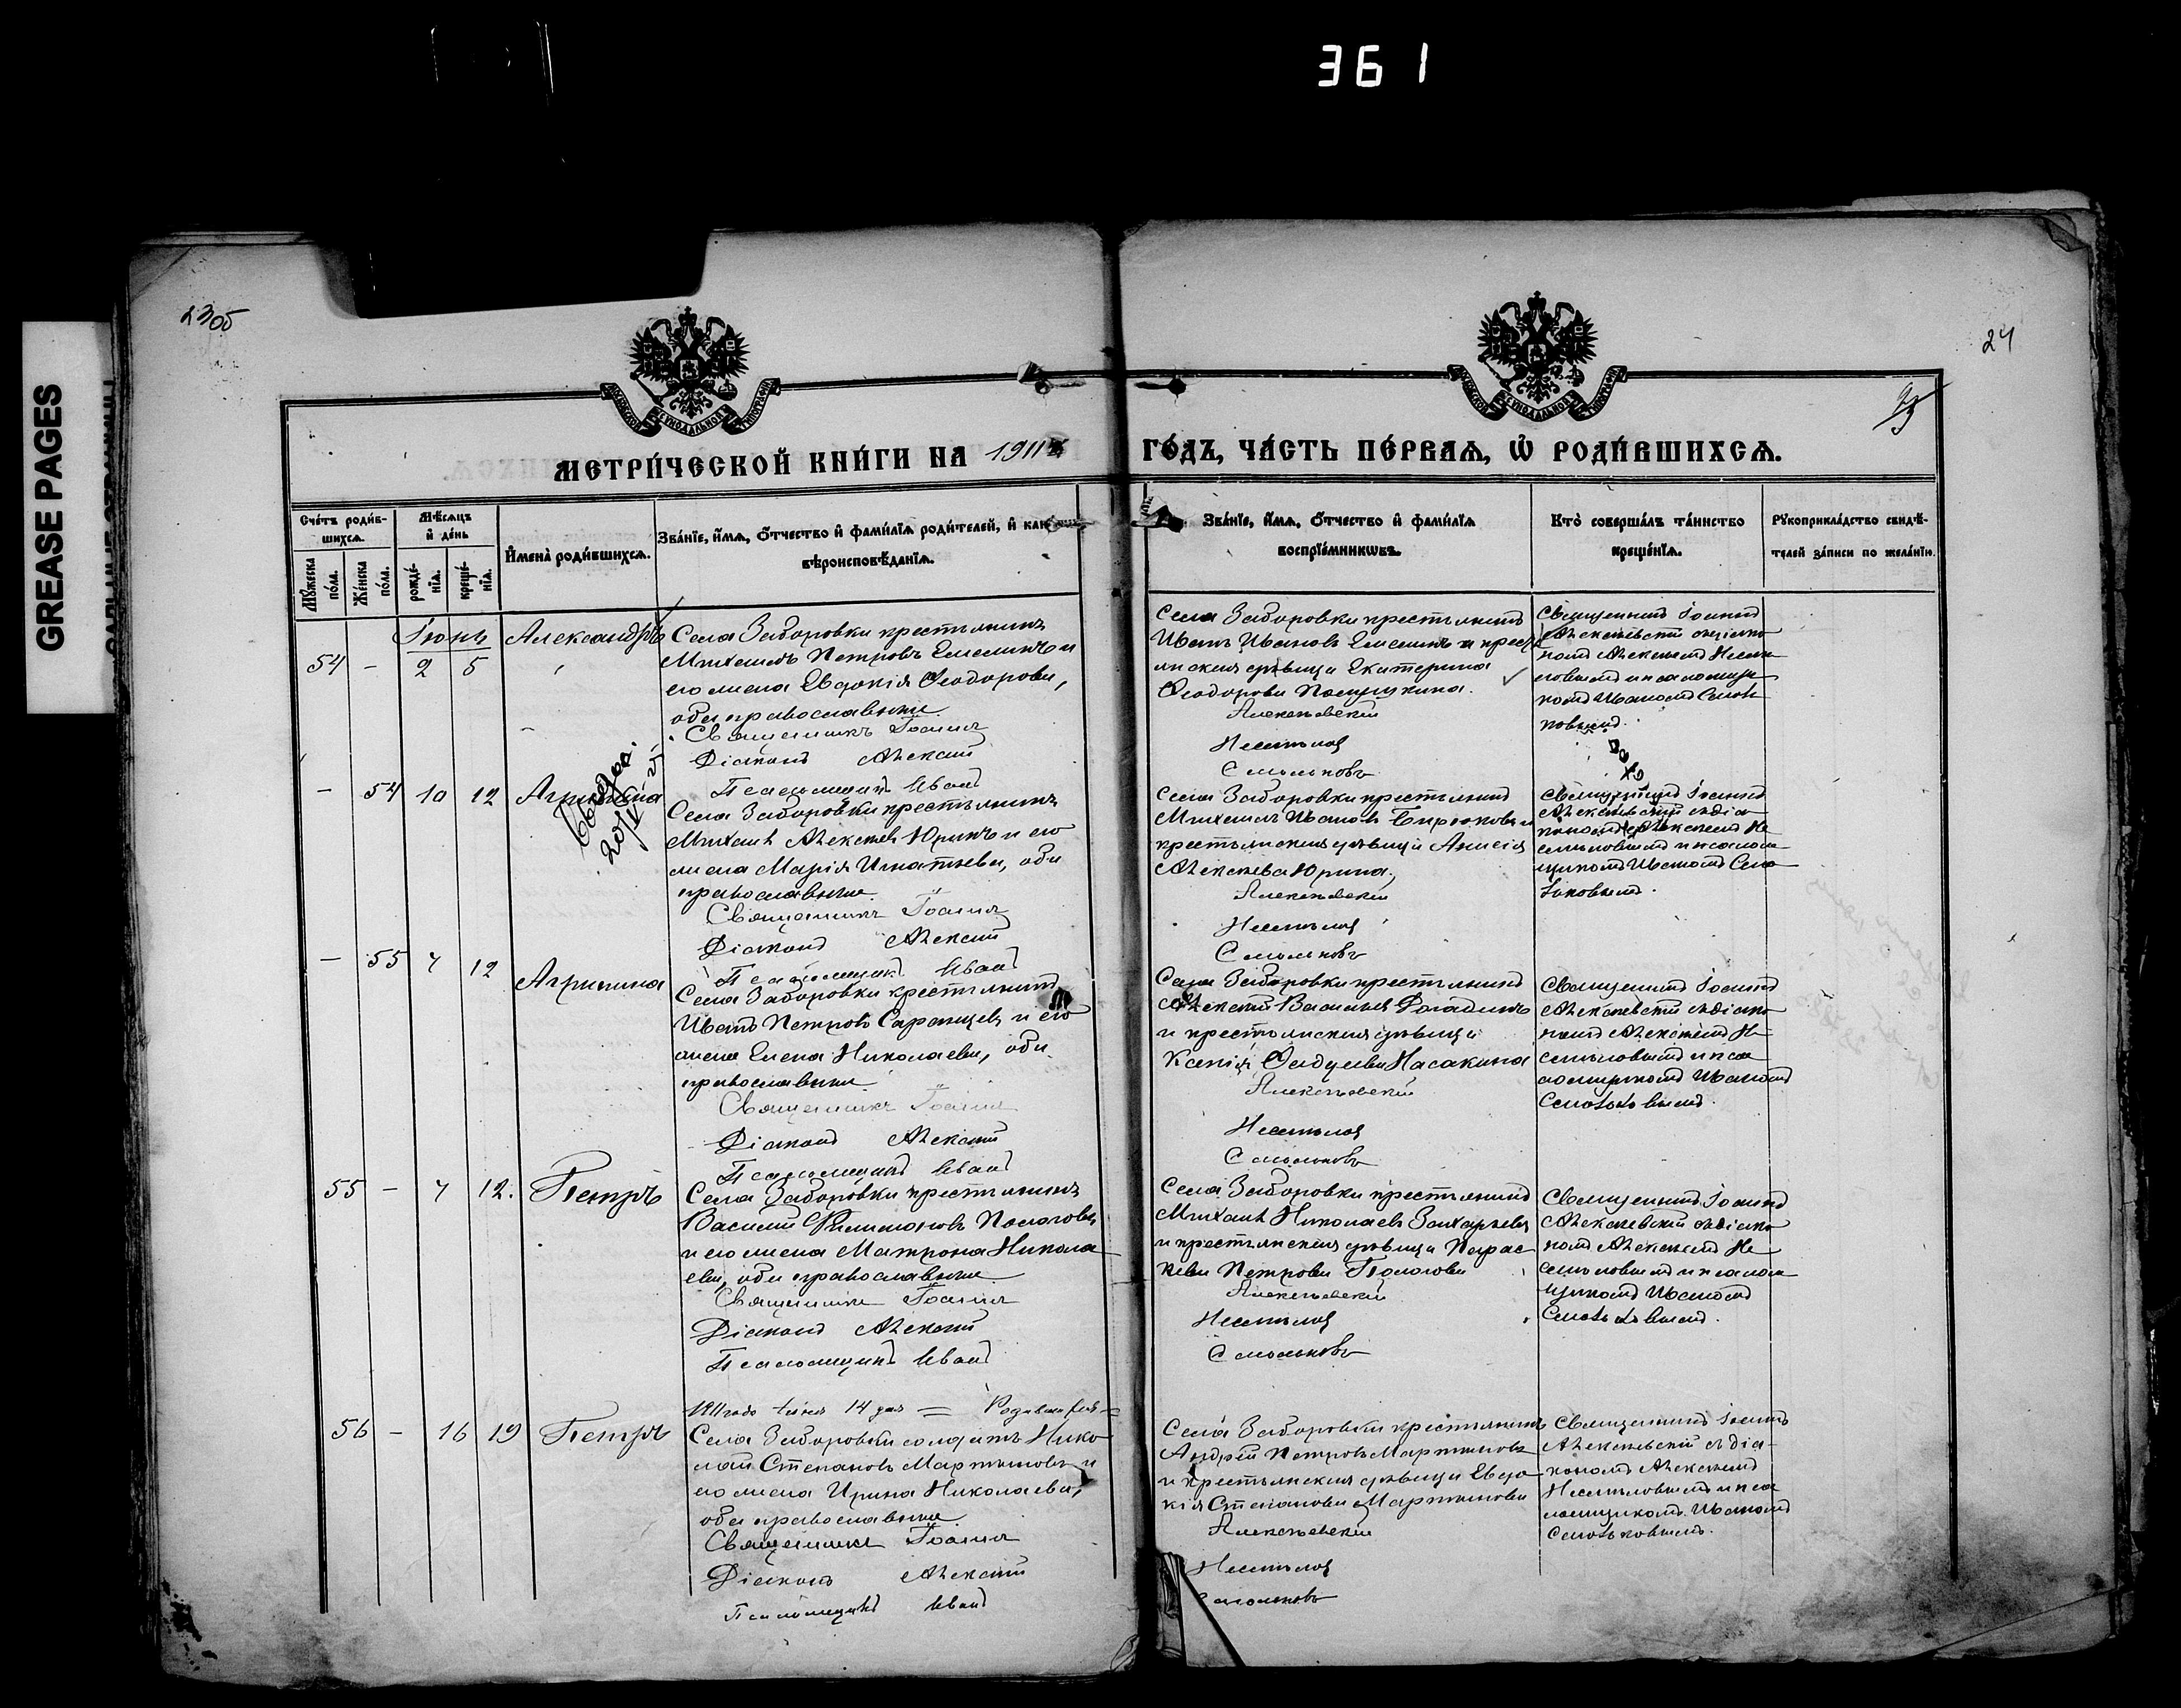 361
GREASE PAGES
23об
24
МЕТРИ́ЧЕСКОЙ КНИ́ГИ НА 1911 ГО́ДЪ, ЧА́СТЬ ПЕ́РВАѦ, Ѿ РОДИ́ВШИХСѦ.
Сче́тъ роди́в-
шихсѧ.
Мꙋ́жеска по́ла.
Же́нска по́ла.
Мѣ́сѧцъ и҆ де́нь
рожде́-
нїѧ.
креще́-
нїѧ.
И҆мена̀ роди́вшихсѧ.
Зва́нїе, и҆́мѧ, ѻ҆́тчество и҆ фами́лїѧ роди́телей, и҆
вѣроисповѣ́данїѧ.
Зва́нїе, и҆́мѧ, ѻ҆́тчество и҆ фами́лїѧ
воспрїе́мникѡвъ.
Кто̀ соверша́лъ та́инство
креще́нїѧ.
Рꙋкоприкла́дство свидѣ́-
телей за́писи по жела́нїю.
Іюнь
54 - 2 5 Александръ
Села Заборовки крестьянинъ
Михаилъ Петровъ Емелинъ и
его жена Евдокія Ѳеодорова,
оба православные
Священникъ Іоаннъ
Діаконъ Алексій
Псаломщикъ Иванъ
Села Заборовки крестьянинъ
Иванъ Ивановъ Емелинъ и крест
янская дѣвица Екатерина
Ѳеодорова
Алексѣевскій
Несмѣловъ
Смольковъ
Священникъ Іоаннъ
Алексѣевскій съ діако
номъ Алексѣемъ Несмѣ
ловымъ и псаломщи
комъ Иваномъ Смоль
ковымъ.
- 54 10 12 Агрипина
Села Заборовки крестьянинъ
Михаилъ Алексѣевъ Юринъ и его
жена Марія Игнатьева, оба
православные.
Священникъ Іоаннъ
Діаконъ Алексій
Псаломщикъ Иванъ
Села Заборовки крестьянинъ
Михаилъ Ивановъ Бирюковъ и
крестьянская дѣвица Анисія
Алексѣева Юрина,
Алексѣевскій
Несмѣловъ
Смольковъ
Священникъ Іоаннъ
Алексѣевскій съ діа
кономъ Алексѣемъ Не
смѣловымъ и псалом
щикомъ Иваномъ Смо
льковымъ.
- 55 7 12 Агрипина
Села Заборовки крестьянинъ
Иванъ Петровъ Саранцевъ и его
жена Елена Николаева, оба
православные
Священникъ Іоаннъ
Діаконъ Алексій
Псаломщикъ Иванъ
Села Заборовки крестьянинъ
Алексій Васильевъ
и крестьянская дѣвица
Ксенія Насакина
Алексѣевскій
Несмѣловъ
Смольковъ
Священникъ Іоаннъ
Алексѣевскій съ діако
номъ Алексѣемъ Не
смѣловымъ и пса
ломщикомъ Иваномъ
Смольковымъ.
55 - 7 12. Петръ
Села Заборовки крестьянинъ
Василій Филимоновъ Пологовъ
и его жена Матрона Никола
ева, оба православные
Священникъ Іоаннъ
Діаконъ Алексій
Псаломщикъ Иванъ
Села Заборовки крестьянинъ
Михаилъ Николаевъ Захарьевъ
и крестьянская дѣвица Парас
кева Петрова Пологова
Алексѣевскій
Несмѣловъ
Смольковъ
Священникъ Іоаннъ
Алексѣевскій съ діако
номъ Алексѣемъ Не
смѣловымъ и псалом
щикомъ Иваномъ
Смольковымъ.
56 - 16 19 Петръ
1911 года
Села Заборовки солдатъ Нико
лай Степановъ Мартыновъ и
его жена Ирина Николаева,
оба православные
Священникъ Іоаннъ
Діаконъ Алексій
Псаломщикъ Иванъ
Села Заборовки крестьянинъ
Андрей Петровъ Мартыновъ
и крестьянская дѣвица Евдо
кія Степанова Мартынова
Алексѣевскій
Несмѣловъ
Смольковъ
Священникъ Іоаннъ
Алексѣевскій съ діа-
кономъ Алексѣемъ
Несмѣловымъ и пса
ломщикомъ Иваномъ
Смольковымъ.